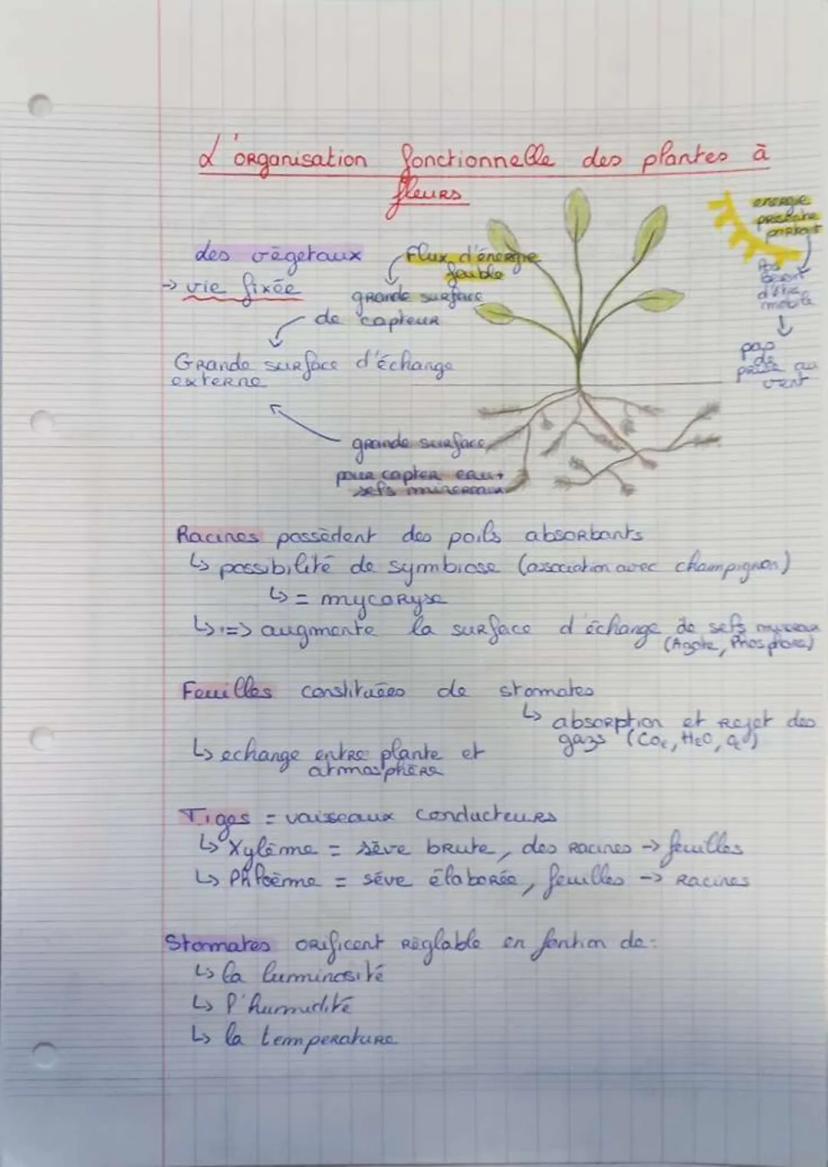 L'organisation fonctionnelle des plantes à
fleurs
des végétaux
→ vie fixée
flux d'énergie
faible
grande surface
de capteur
Grande surface d'échange
externe
énergie
partout
Pas
besoin
d'être
mobile
↓
pas
de
prise au
vent
grande surface
pour capter eau +
sels mineraux
Racines possèdent des poils absorbants
↳ possibilité de symbiose (association avec champignon)
↳ = mycoryse
↳ => augmente la surface d'échange de sels mineraux
(Azote, Phosphore)
Feuilles constituées de stomates
↳ absorption et rejet des
gazs (CO2, H2O, O2)
↳ echange entre plante et
atmosphère
Tiges = vaisseaux conducteurs
↳ Xylème = sève brute, des racines → feuilles
↳ Phloème = séve élaborée, feuilles → racines
Stomates orificent réglable en fontion de :
↳ la luminosité
↳ l'humidité
↳ la temperature